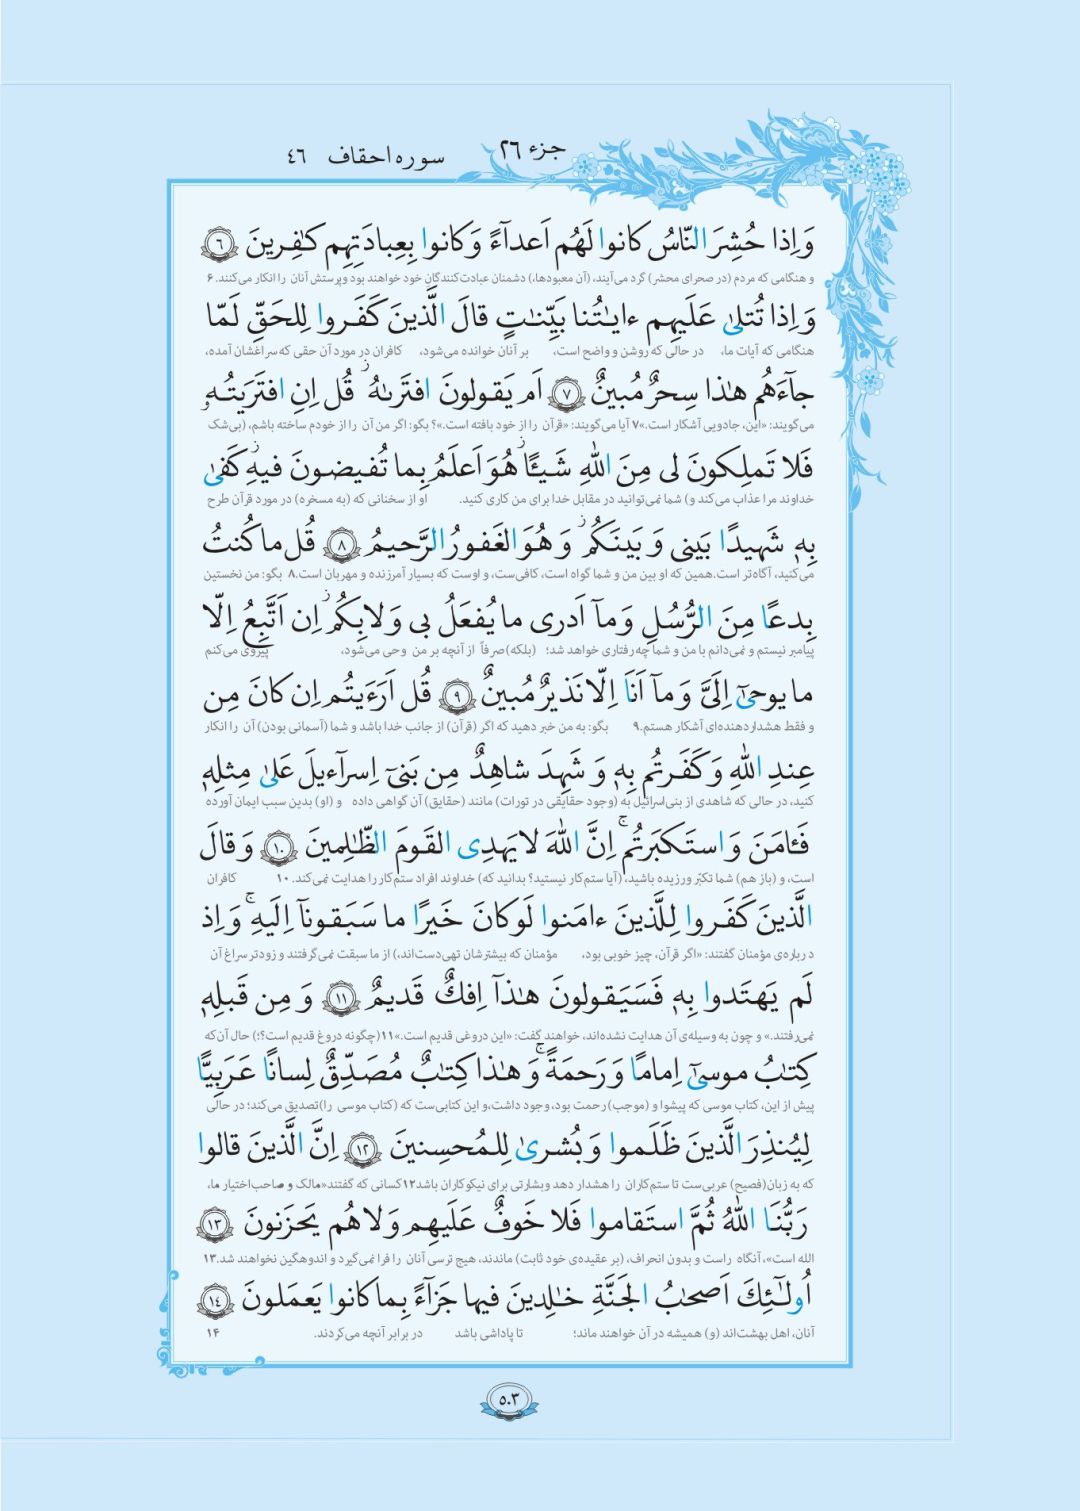 جزء ٢٦
سوره احقاف ٤٦
وَ اِذا حُشِرَ النّاسُ کانوا لَهُم اَعدآءً وَ کانوا بِعِبادَتِهِم کٰفِرینَ ٦
و هنگامی که مردم (در صحرای محشر) گرد می‌آیند، (آن معبودها،) دشمنان عبادت‌کنندگان خود خواهند بود و پرستش آنان را انکار می‌کنند. ۶
وَ اِذا تُتلیٰ عَلَیهِم ءایٰتُنا بَیِّنٰتٍ قالَ الَّذینَ کَفَروا لِلحَقِّ لَمّا
هنگامی که آیات ما، در حالی که روشن و واضح است، بر آنان خوانده می‌شود، کافران در مورد آن حقی که سراغشان آمده،
جآءَهُم هٰذا سِحرٌ مُبینٌ ٧ اَم یَقولونَ افتَرٰىهُ ۖ قُل اِنِ افتَرَیتُهٗ
می‌گویند: «این، جادویی آشکار است.»۷ آیا می‌گویند: «قرآن را از خود بافته است.»؟ بگو: اگر من آن را از خودم ساخته باشم، (بی‌شک
فَلا تَملِکونَ لی مِنَ اللّٰهِ شَیـًٔا ۖ هُوَ اَعلَمُ بِما تُفیضونَ فیهِ ۖ کَفیٰ
خداوند مرا عذاب می‌کند و) شما نمی‌توانید در مقابل خدا برای من کاری کنید. او از سخنانی که (به مسخره) در مورد قرآن طرح
بِهٖ شَهیدًا بَینی وَ بَینَکُم ۖ وَ هُوَ الغَفورُ الرَّحیمُ ٨ قُل ما کُنتُ
می‌کنید، آگاه‌تر است. همین که او بین من و شما گواه است، کافی‌ست، و اوست که بسیار آمرزنده و مهربان است.۸ بگو: من نخستین
بِدعًا مِنَ الرُّسُلِ وَ مآ اَدری ما یُفعَلُ بی وَ لا بِکُم ۖ اِن اَتَّبِعُ اِلّا
پیامبر نیستم و نمی‌دانم با من و شما چه رفتاری خواهد شد؛ (بلکه) صرفاً از آنچه بر من وحی می‌شود، پیروی می‌کنم
ما یوحیٰٓ اِلَیَّ وَ مآ اَنَا اِلّا نَذیرٌ مُبینٌ ٩ قُل اَرَءَیتُم اِن کانَ مِن
و فقط هشداردهنده‌ای آشکار هستم.۹ بگو: به من خبر دهید که اگر (قرآن) از جانب خدا باشد و شما (آسمانی بودن) آن را انکار
عِندِ اللّٰهِ وَ کَفَرتُم بِهٖ وَ شَهِدَ شاهِدٌ مِن بَنیٓ اِسرآءیلَ عَلیٰ مِثلِهٖ
کنید، در حالی که شاهدی از بنی‌اسرائیل به (وجود حقایقی در تورات) مانند (حقایق) آن گواهی داده و (او) بدین سبب ایمان آورده
فَـٔامَنَ وَ استَکبَرتُم ۚ اِنَّ اللّٰهَ لا یَهدِی القَومَ الظّٰلِمینَ ١٠ وَ قالَ
است، و (باز هم) شما تکبّر ورزیده باشید، (آیا ستم‌کار نیستید؟ بدانید که) خداوند افراد ستم‌کار را هدایت نمی‌کند. ۱۰ کافران
الَّذینَ کَفَروا لِلَّذینَ ءامَنوا لَو کانَ خَیرًا ما سَبَقونآ اِلَیهِ ۚ وَ اِذ
درباره‌ی مؤمنان گفتند: «اگر قرآن، چیز خوبی بود، مؤمنان که بیشترشان تهی‌دست‌اند، از ما سبقت نمی‌گرفتند و زودتر سراغ آن
لَم یَهتَدوا بِهٖ فَسَیَقولونَ هٰذآ اِفکٌ قَدیمٌ ١١ وَ مِن قَبلِهٖ
نمی‌رفتند.» و چون به وسیله‌ی آن هدایت نشده‌اند، خواهند گفت: «این دروغی قدیم است.»۱۱ (چگونه دروغ قدیم است؟!) حال آن‌که
کِتٰبُ موسیٰٓ اِمامًا وَ رَحمَةً ۚ وَ هٰذا کِتٰبٌ مُصَدِّقٌ لِسانًا عَرَبِیًّا
پیش از این، کتاب موسی که پیشوا و (موجب) رحمت بود، وجود داشت، و این کتابی‌ست که (کتاب موسی را) تصدیق می‌کند؛ در حالی
لِیُنذِرَ الَّذینَ ظَلَموا وَ بُشریٰ لِلمُحسِنینَ ١٢ اِنَّ الَّذینَ قالوا
که به زبان (فصیح) عربی‌ست تا ستم‌کاران را هشدار دهد و بشارتی برای نیکوکاران باشد ۱۲ کسانی که گفتند «مالک و صاحب‌اختیار ما،
رَبُّنَا اللّٰهُ ثُمَّ استَقاموا فَلا خَوفٌ عَلَیهِم وَ لا هُم یَحزَنونَ ١٣
الله است»، آنگاه راست و بدون انحراف، (بر عقیده‌ی خود ثابت) ماندند، هیچ ترسی آنان را فرا نمی‌گیرد و اندوهگین نخواهند شد.۱۳
اُولٰٓئِکَ اَصحٰبُ الجَنَّةِ خٰلِدینَ فیها جَزآءً بِما کانوا یَعمَلونَ ١٤
آنان، اهل بهشت‌اند (و) همیشه در آن خواهند ماند؛ تا پاداشی باشد در برابر آنچه می‌کردند. ۱۴
٥٠٣